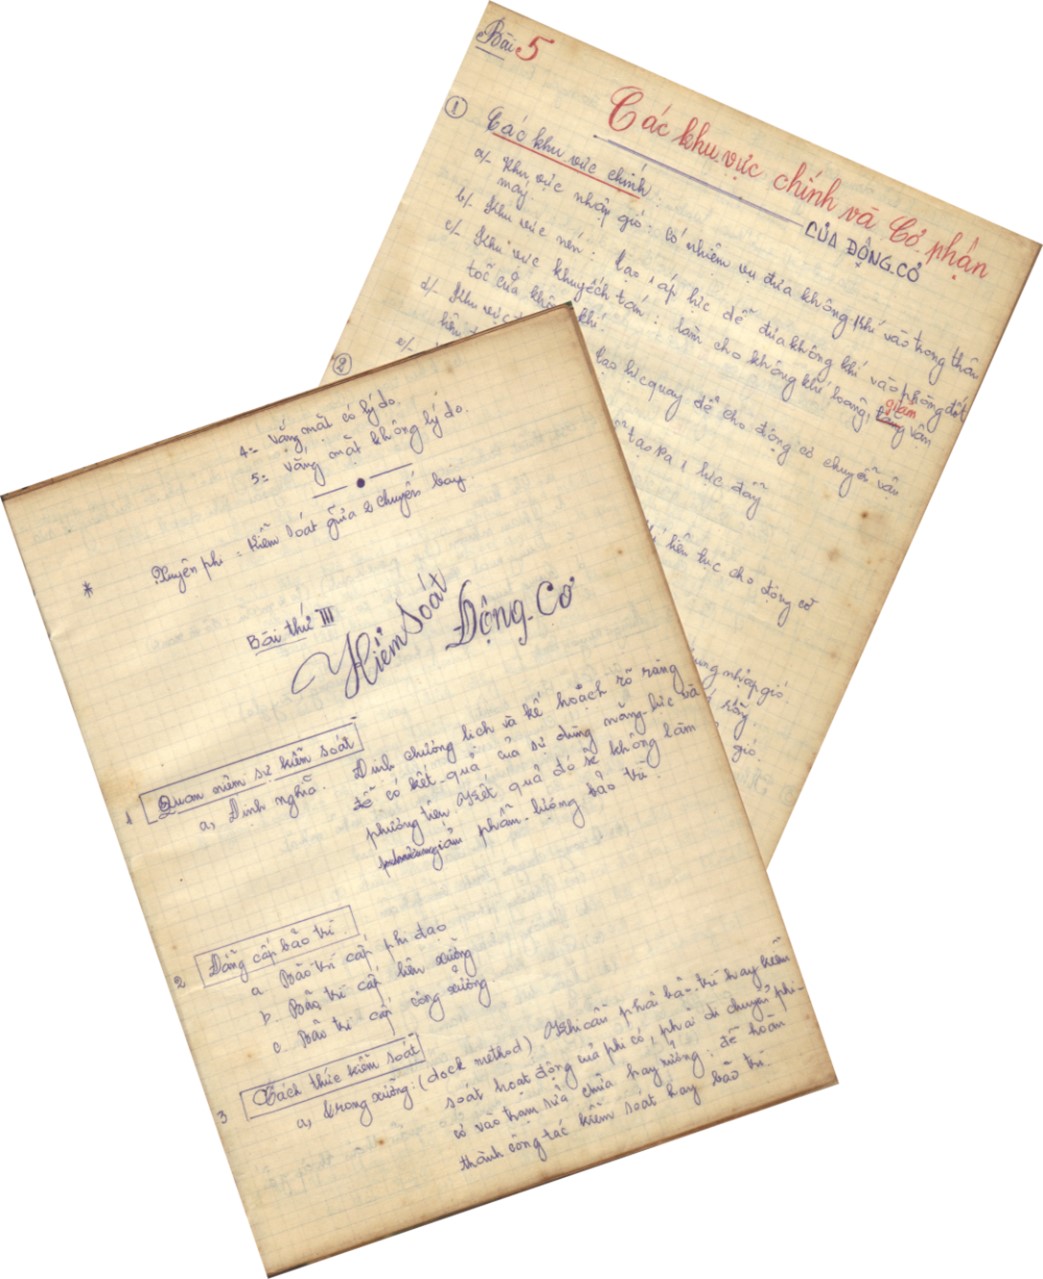 Bài 5
Các khu vực chính và Cơ phận
CỦA ĐỘNG-CƠ
1 Các khu vực chính
a/- Khu vực nhập gió: có nhiệm vụ đưa không khí vào trong thân
máy.
b/- Khu vực nén: tạo áp lực để đưa không khí vào phòng đốt
c/- Khu vực khuyếch tán: làm cho không khí loãng, giảm vận
tốc của không khí.
d/- Khu vực
tạo lực quay để cho động cơ chuyển vận
liên
e/-
tạo ra 1 lực đẩy
2
liên tục cho động cơ
nhập gió
gió
4= Vắng mặt có lý do.
5= Vắng mặt không lý do.
* Xuyên phi = Kiểm soát giữa 2 chuyến bay
Bài thứ III
Kiểm soát Động-Cơ
1 Quan niệm sự kiểm soát
a, Định nghĩa. Định chương lịch và kế hoạch rõ ràng
để có kết quả của sử dụng năng-lực và
phương tiện. Kết quả đó sẽ không làm
giảm phẩm-lượng bảo trì.
2 Đẳng cấp bảo trì
a. Bảo trì cấp phi đạo
b. Bảo trì cấp liên xưởng
c. Bảo trì cấp công xưởng
3 Cách thức kiểm soát
a, trong xưởng: (dock method) Khi cần phải bảo-trì hay kiểm
soát hoạt động của phi cơ, phải di chuyển phi-
cơ vào trạm sửa chữa hay xưởng: để hoàn
thành công tác kiểm soát hay bảo trì.